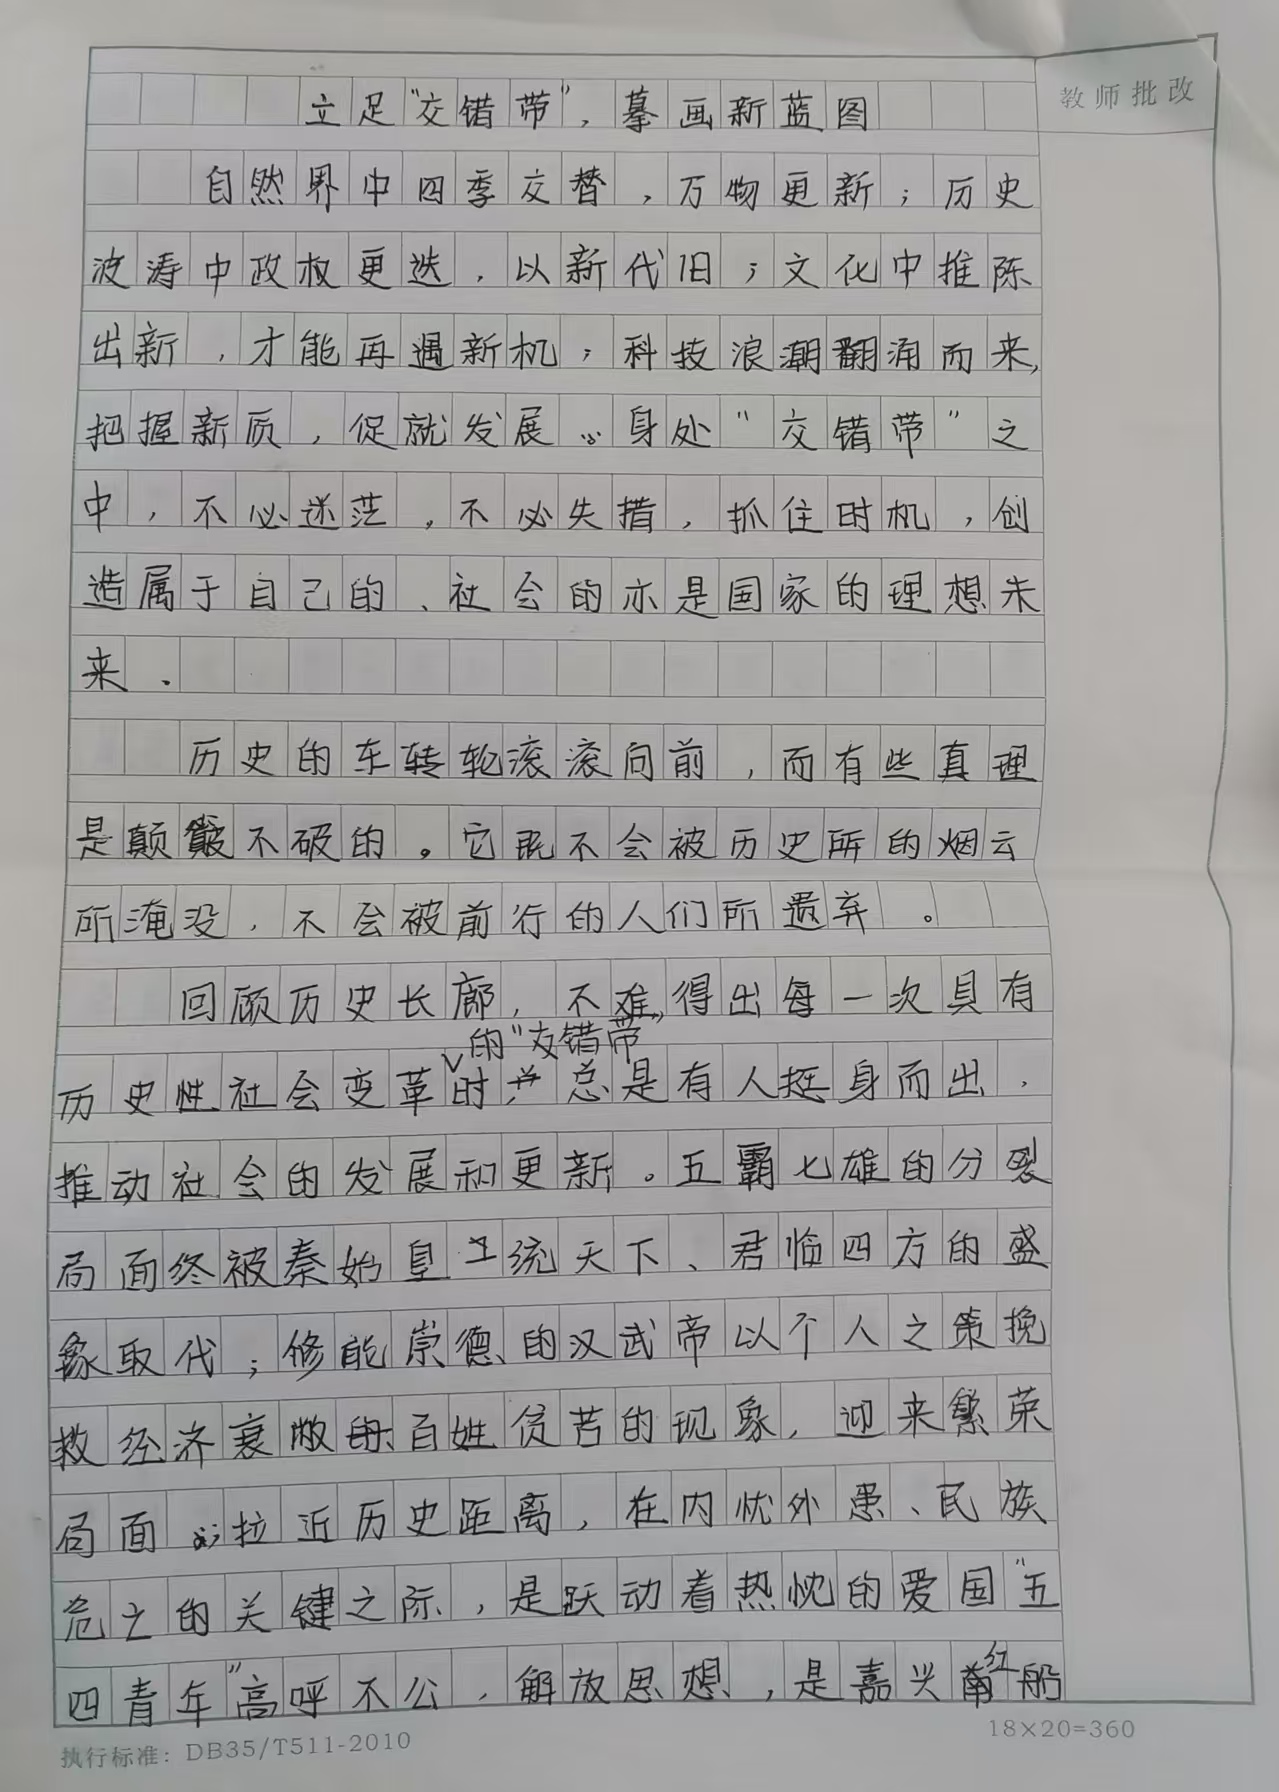 立足“交错带”，摹画新蓝图
教师批改
自然界中四季交替，万物更新；历史
波涛中政权更迭，以新代旧；文化中推陈
出新，才能再遇新机；科技浪潮翻涌而来，
把握新质，促就发展。身处“交错带”之
中，不必迷茫，不必失措，抓住时机，创
造属于自己的、社会的亦是国家的理想未
来．
历史的车转轮滚滚向前，而有些真理
是颠簸不破的。它既不会被历史所的烟云
所淹没，不会被前行的人们所遗弃。
回顾历史长廊，不难得出每一次具有
的“交错带”
历史性社会变革时，总是有人挺身而出，
推动社会的发展和更新。五霸七雄的分裂
局面终被秦始皇一统天下、君临四方的盛
象取代；修能崇德的汉武帝以个人之策挽
救经济衰败百姓贫苦的现象，迎来繁荣
局面；拉近历史距离，在内忧外患、民族
危亡的关键之际，是跃动着热忱的爱国“五
四青年”高呼不公，解放思想，是嘉兴红船
执行标准：DB35/T511-2010
18×20=360